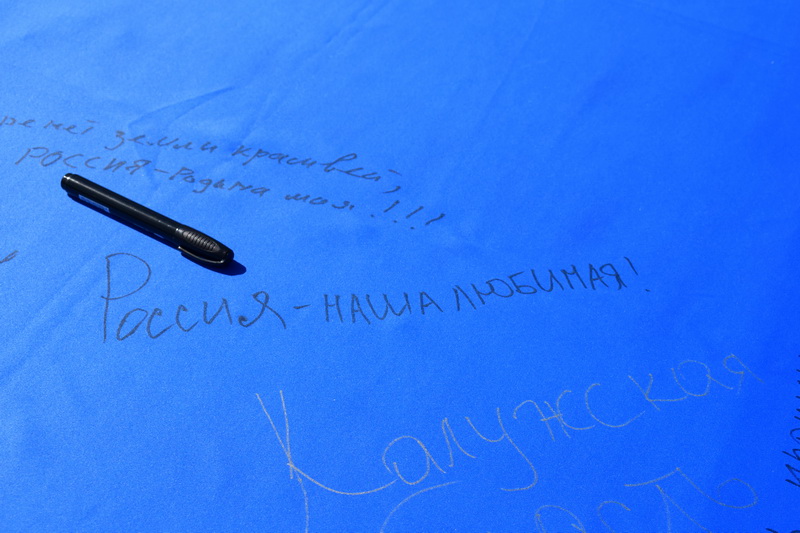 земли красивей,
РОССИЯ - Родина моя!!!
Россия - НАША ЛЮБИМАЯ!
Калужская